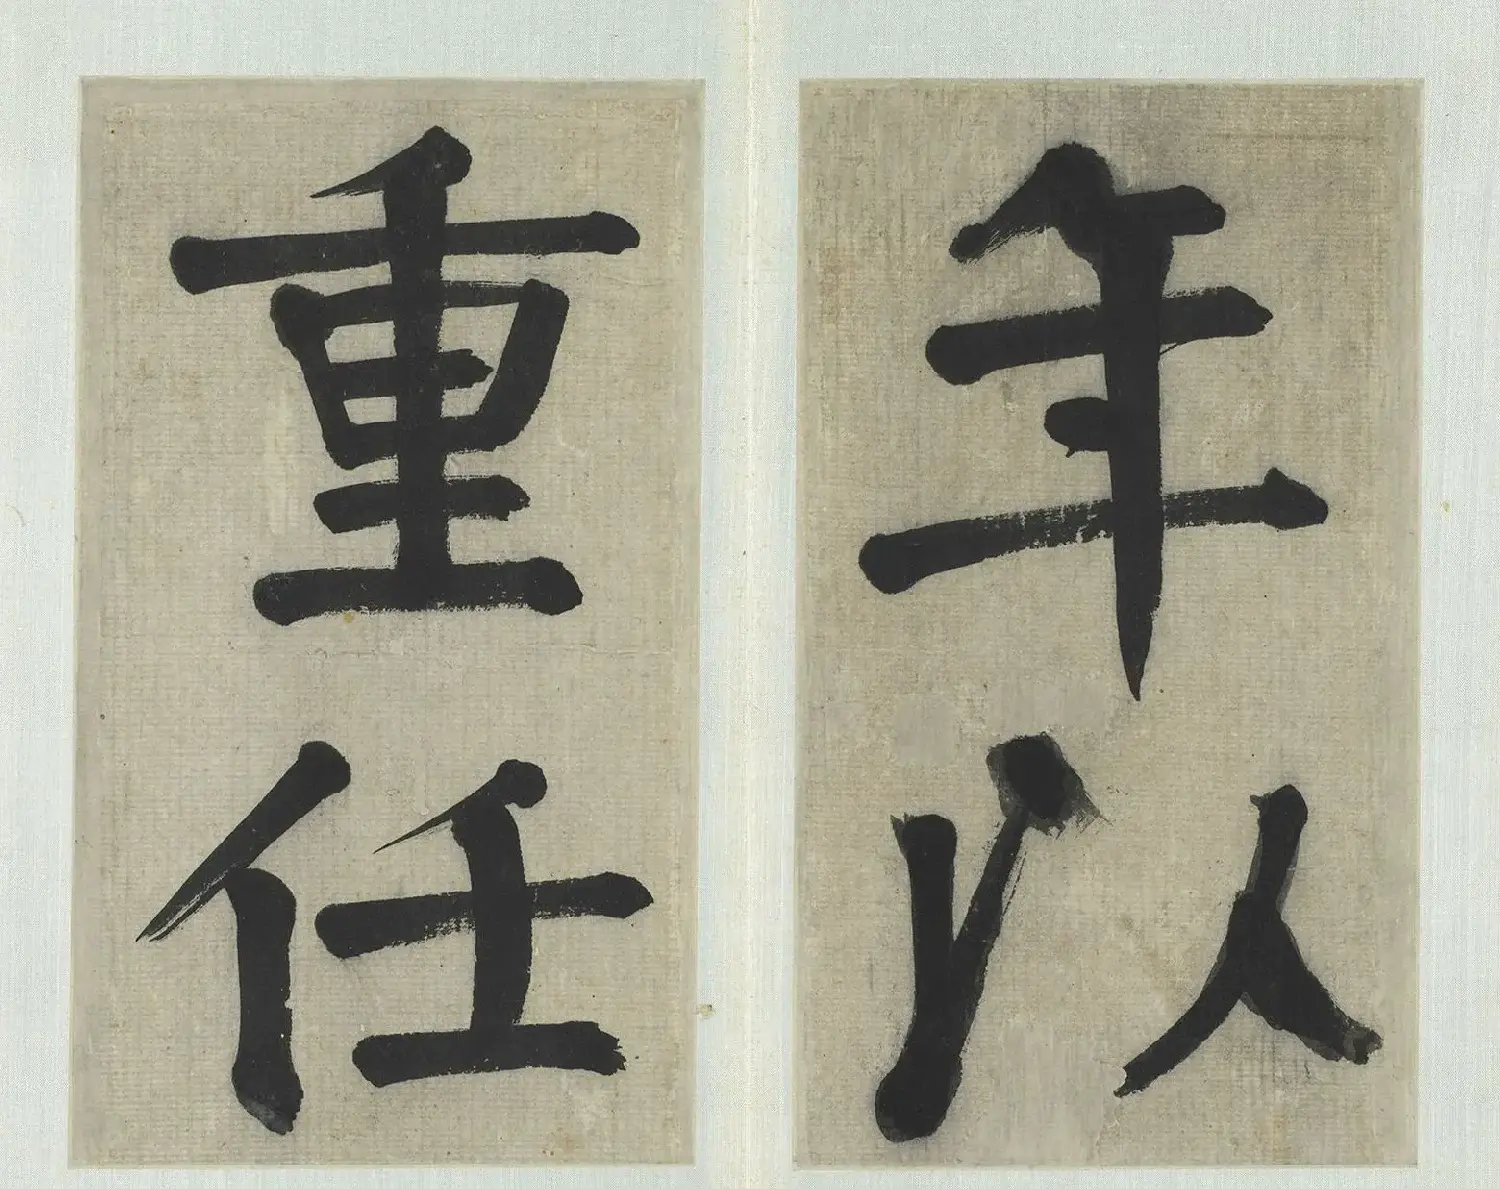 年以
重任